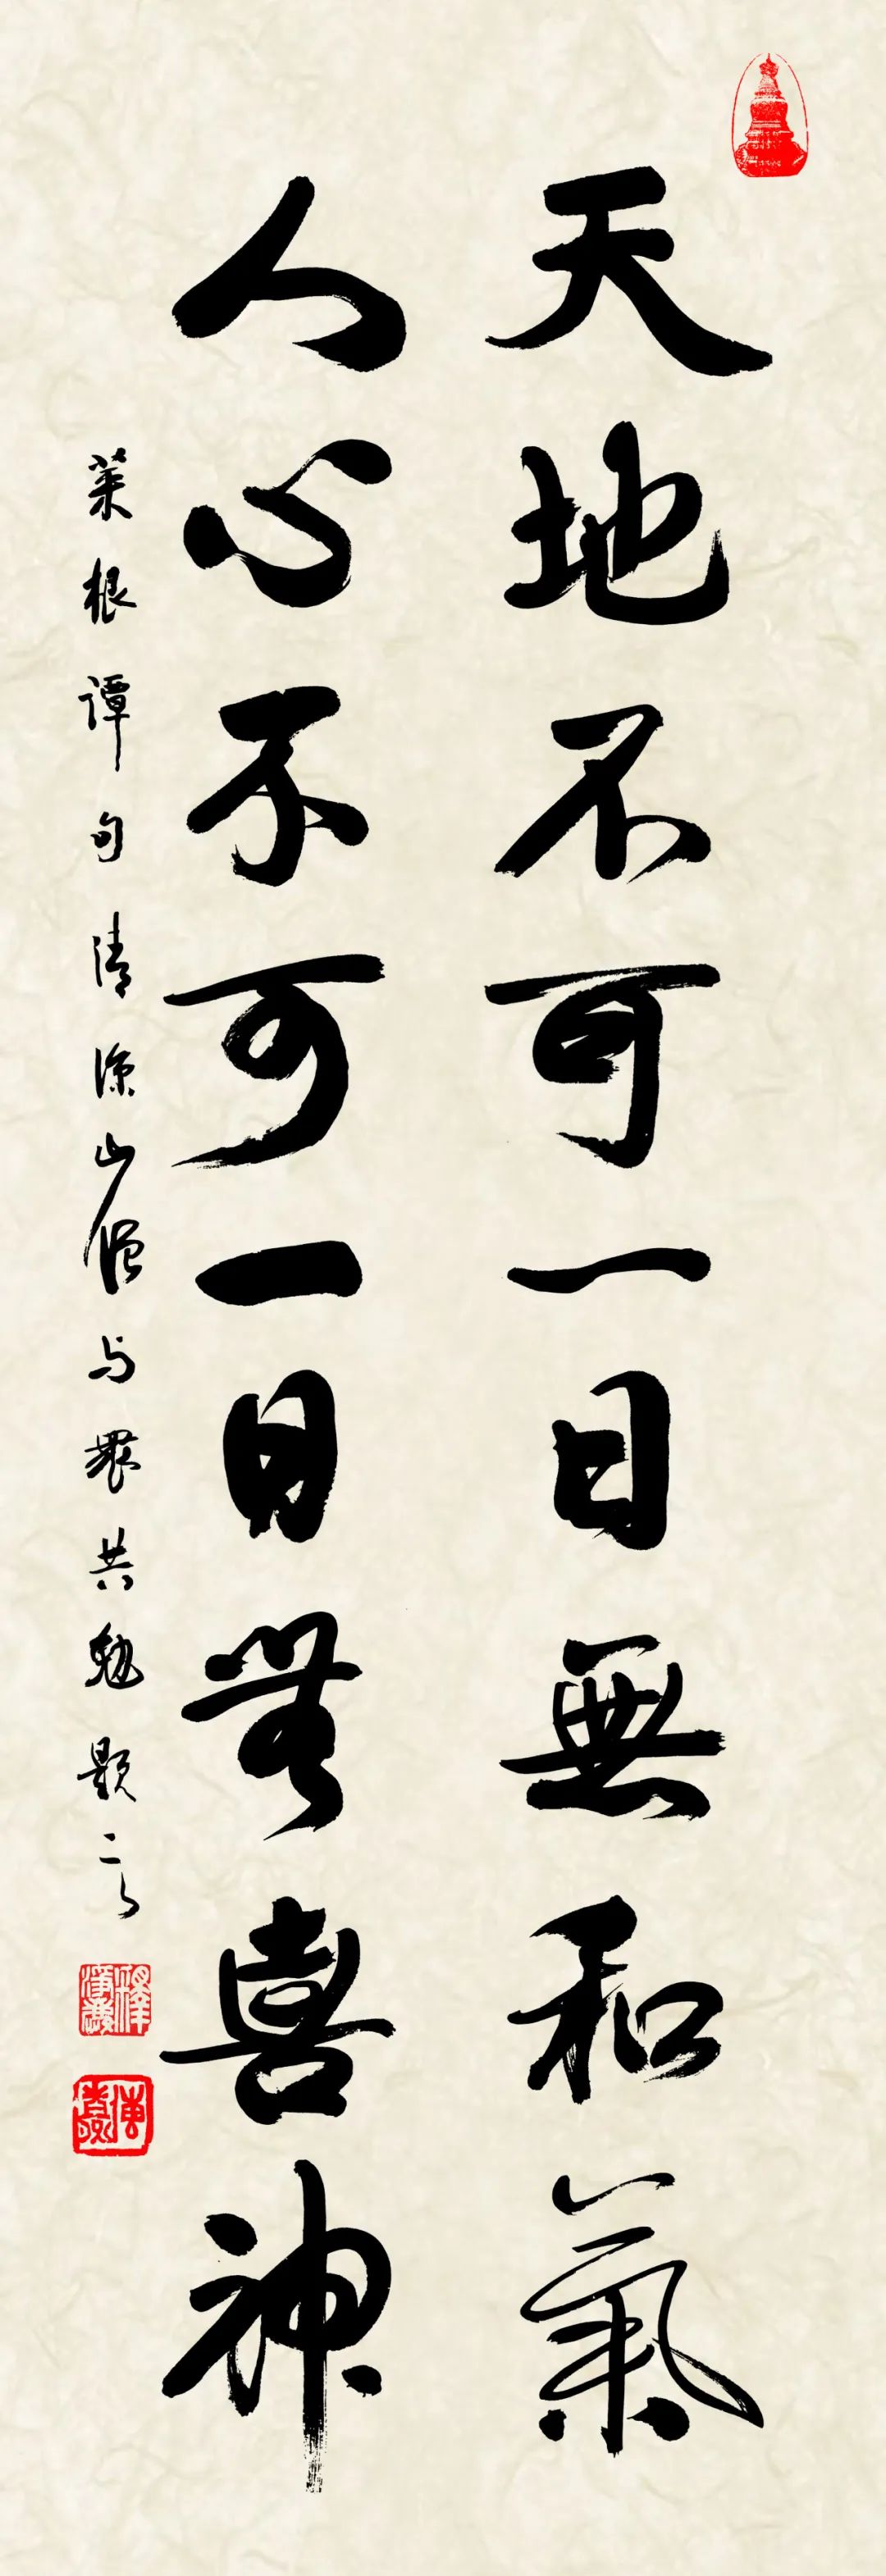 天地不可一日無和氣
人心不可一日無喜神
菜根譚句清涼山僧与眾共勉題之